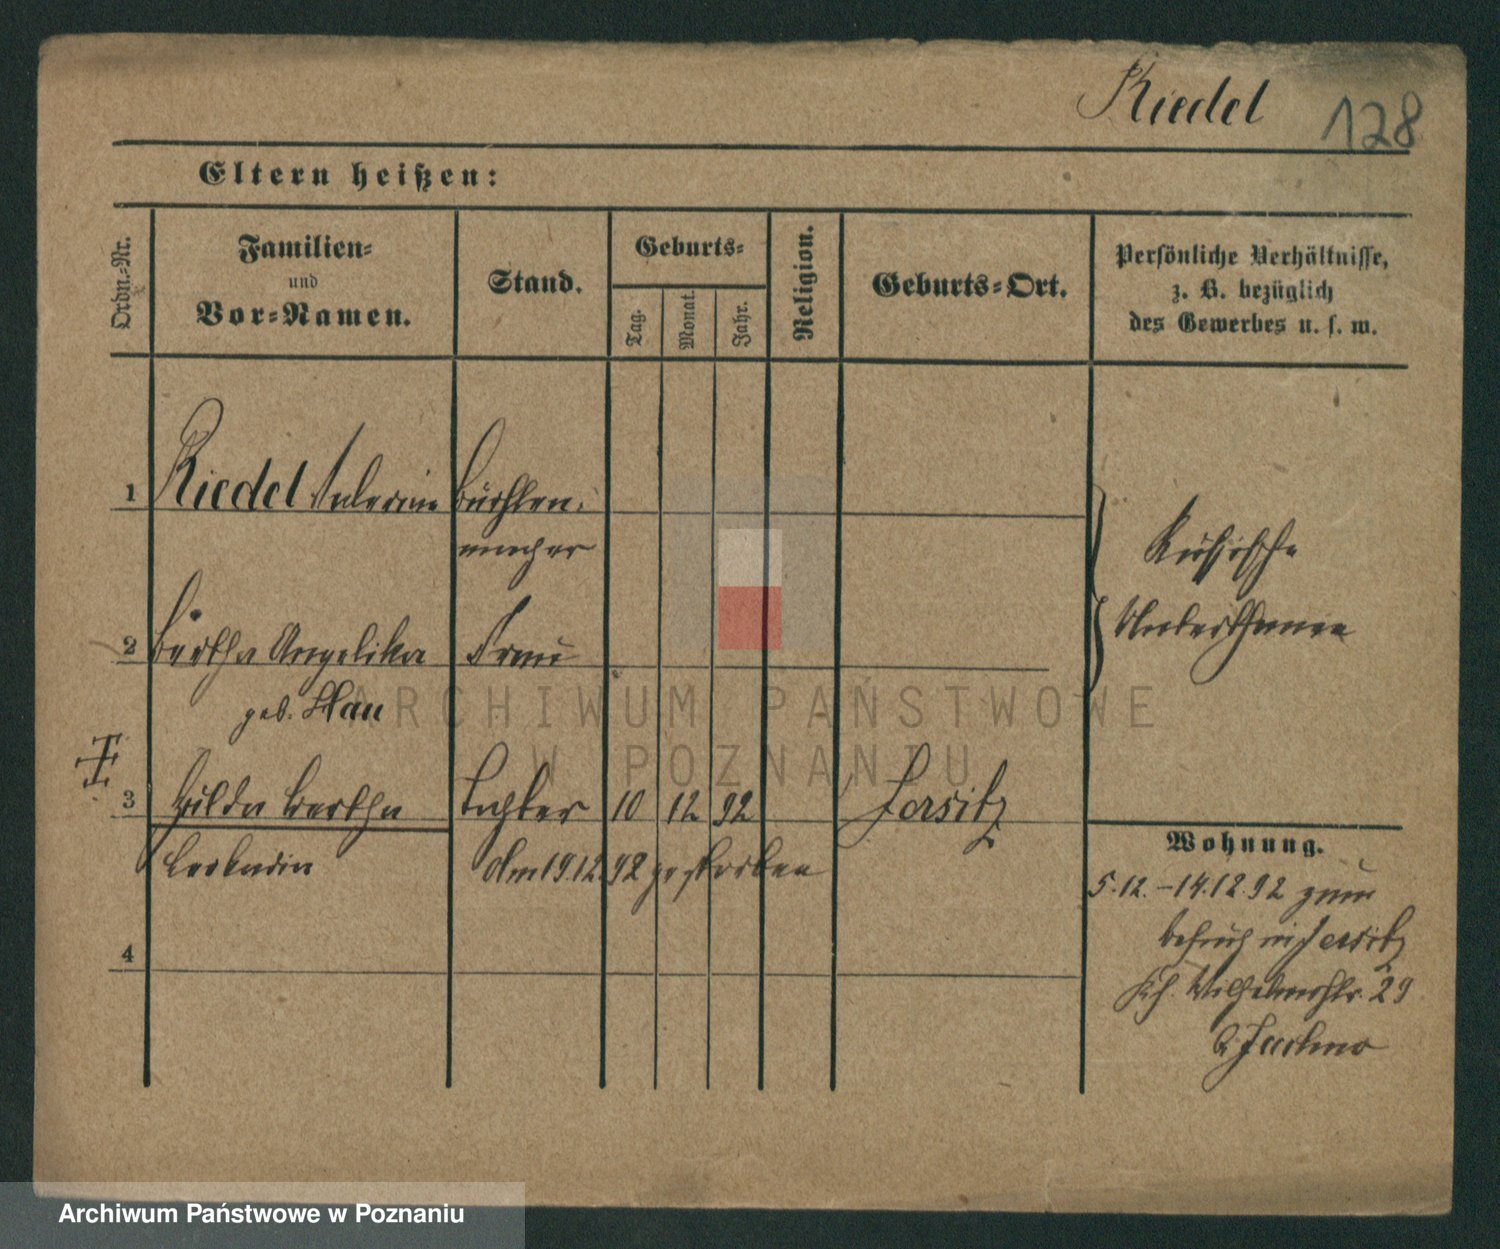 Riedel 128
Eltern heißen:
Ordn.-Nr.
Familien-
und
Vor-Namen.
Stand.
Geburts-
Tag.
Monat.
Jahr.
Religion.
Geburts-Ort.
Persönliche Verhältnisse,
z. B. bezüglich
des Gewerbes u. s. w.
1 Riedel Bürsten-
macher
Russische
Unterthanen
2 Bertha Angelika Frau
geb. Hau
3 Hilda Bertha Tochter 10 12 92 Jersitz
Leokadia Am 19.12.92 gestorben
Wohnung.
5.12.-14.12.92 zum
Besuch in Jersitz
Kh. Wilhelmstr. 29
4
ARCHIWUM PAŃSTWOWE
W POZNANIU
Archiwum Państwowe w Poznaniu